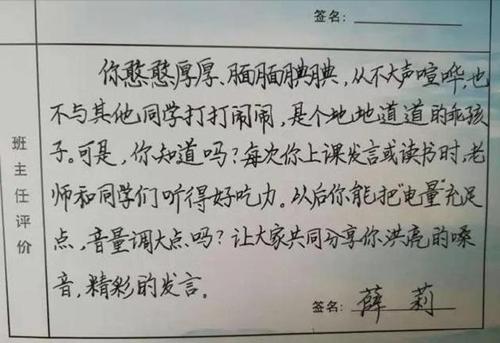 签名：
你憨憨厚厚、腼腼腆腆，从不大声喧哗，也
不与其他同学打打闹闹，是个地地道道的乖孩
子。可是，你知道吗？每次你上课发言或读书时，老
师和同学们听得好吃力。以后你能把"电量"充足
点，音量调大点吗？让大家共同分享你洪亮的嗓
音，精彩的发言。
班主任评价
签名：薛莉